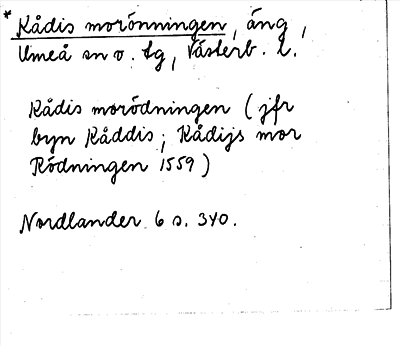 * Kådis morönningen, äng,
Umeå sn o. tg, Västerb. l.
Kådis morödningen (jfr
byn Kåddis; Kådijs mor
Rödningen 1559)
Nordlander 6 s. 340.